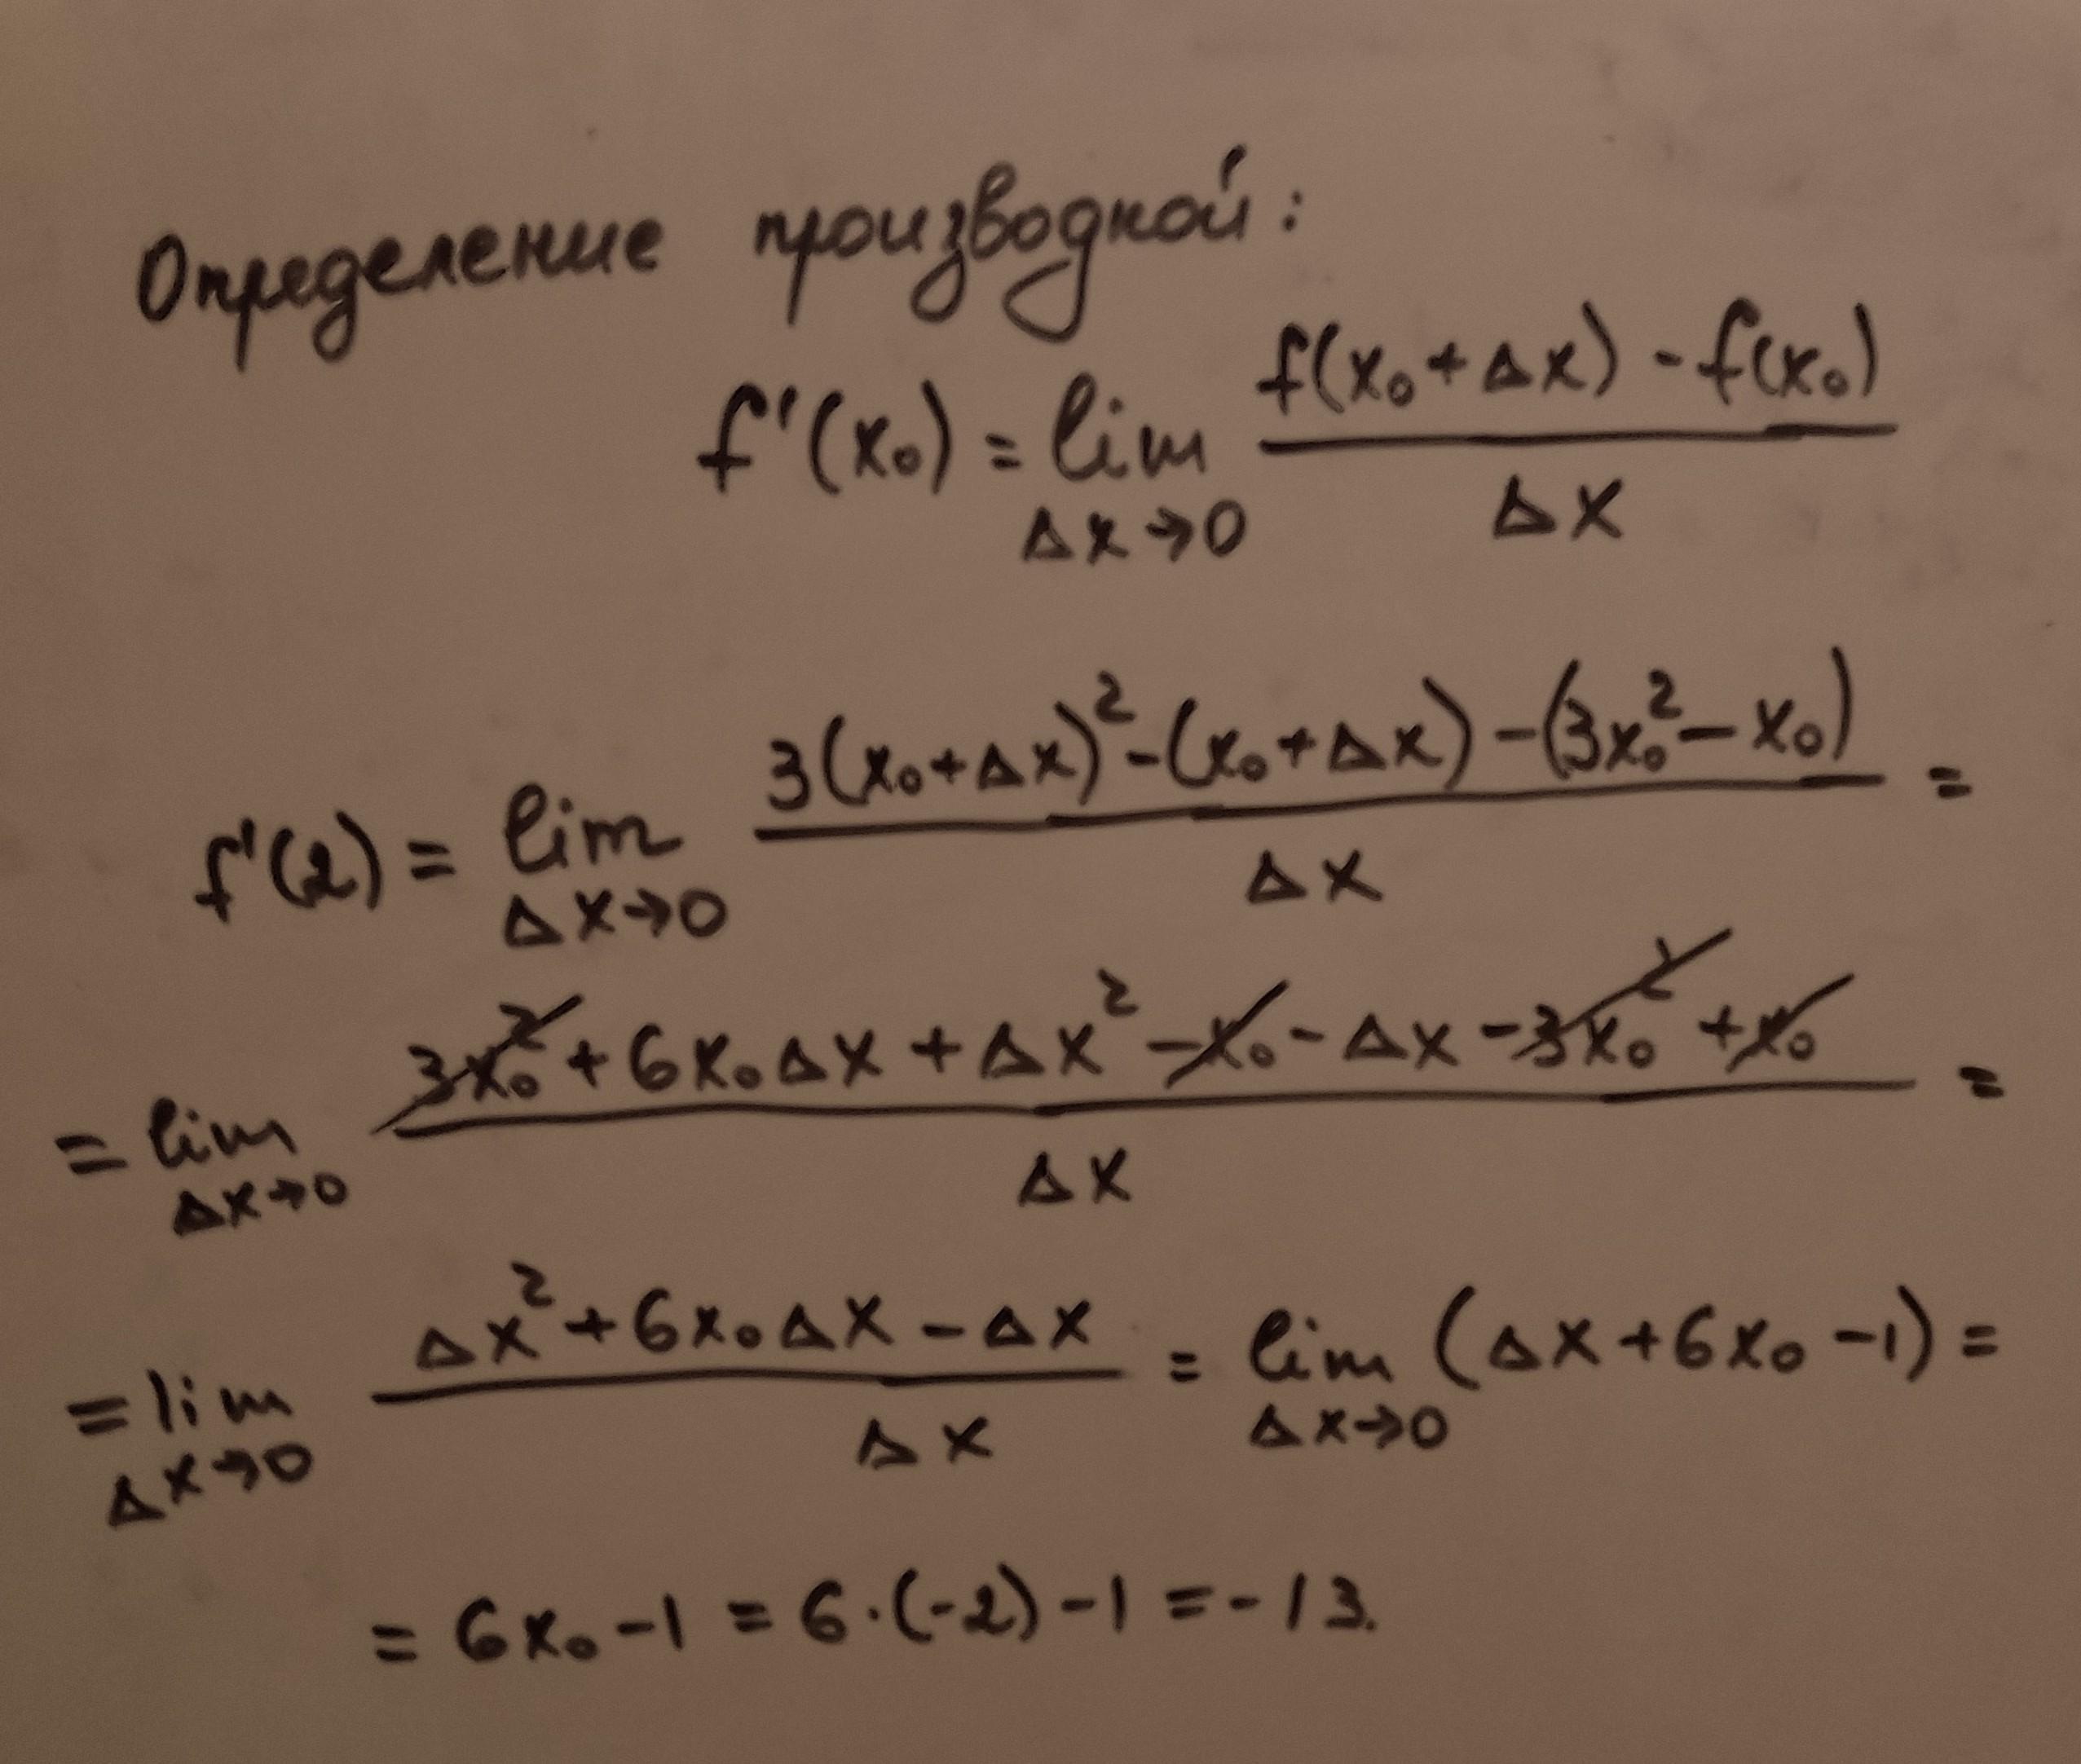 Определение производной:
f'(x₀) = lim_{Δx→0} (f(x₀+Δx) - f(x₀)) / Δx
f'(2) = lim_{Δx→0} (3(x₀+Δx)² - (x₀+Δx) - (3x₀² - x₀)) / Δx =
= lim_{Δx→0} (3x₀² + 6x₀Δx + Δx² - x₀ - Δx - 3x₀² + x₀) / Δx =
= lim_{Δx→0} (Δx² + 6x₀Δx - Δx) / Δx = lim_{Δx→0} (Δx + 6x₀ - 1) =
= 6x₀ - 1 = 6·(-2) - 1 = -13.